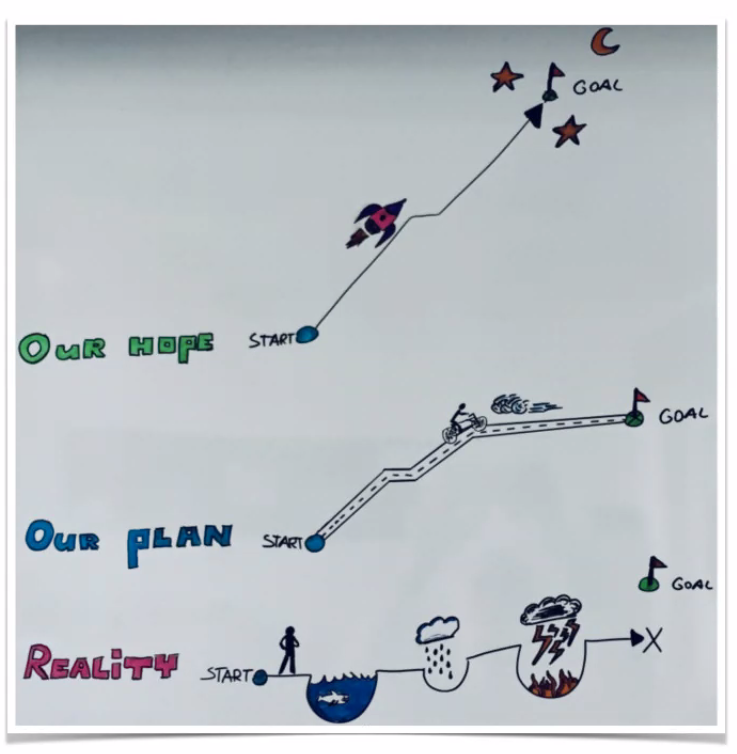 GOAL
OUR HOPE START
GOAL
OUR PLAN START
GOAL
REALITY START X